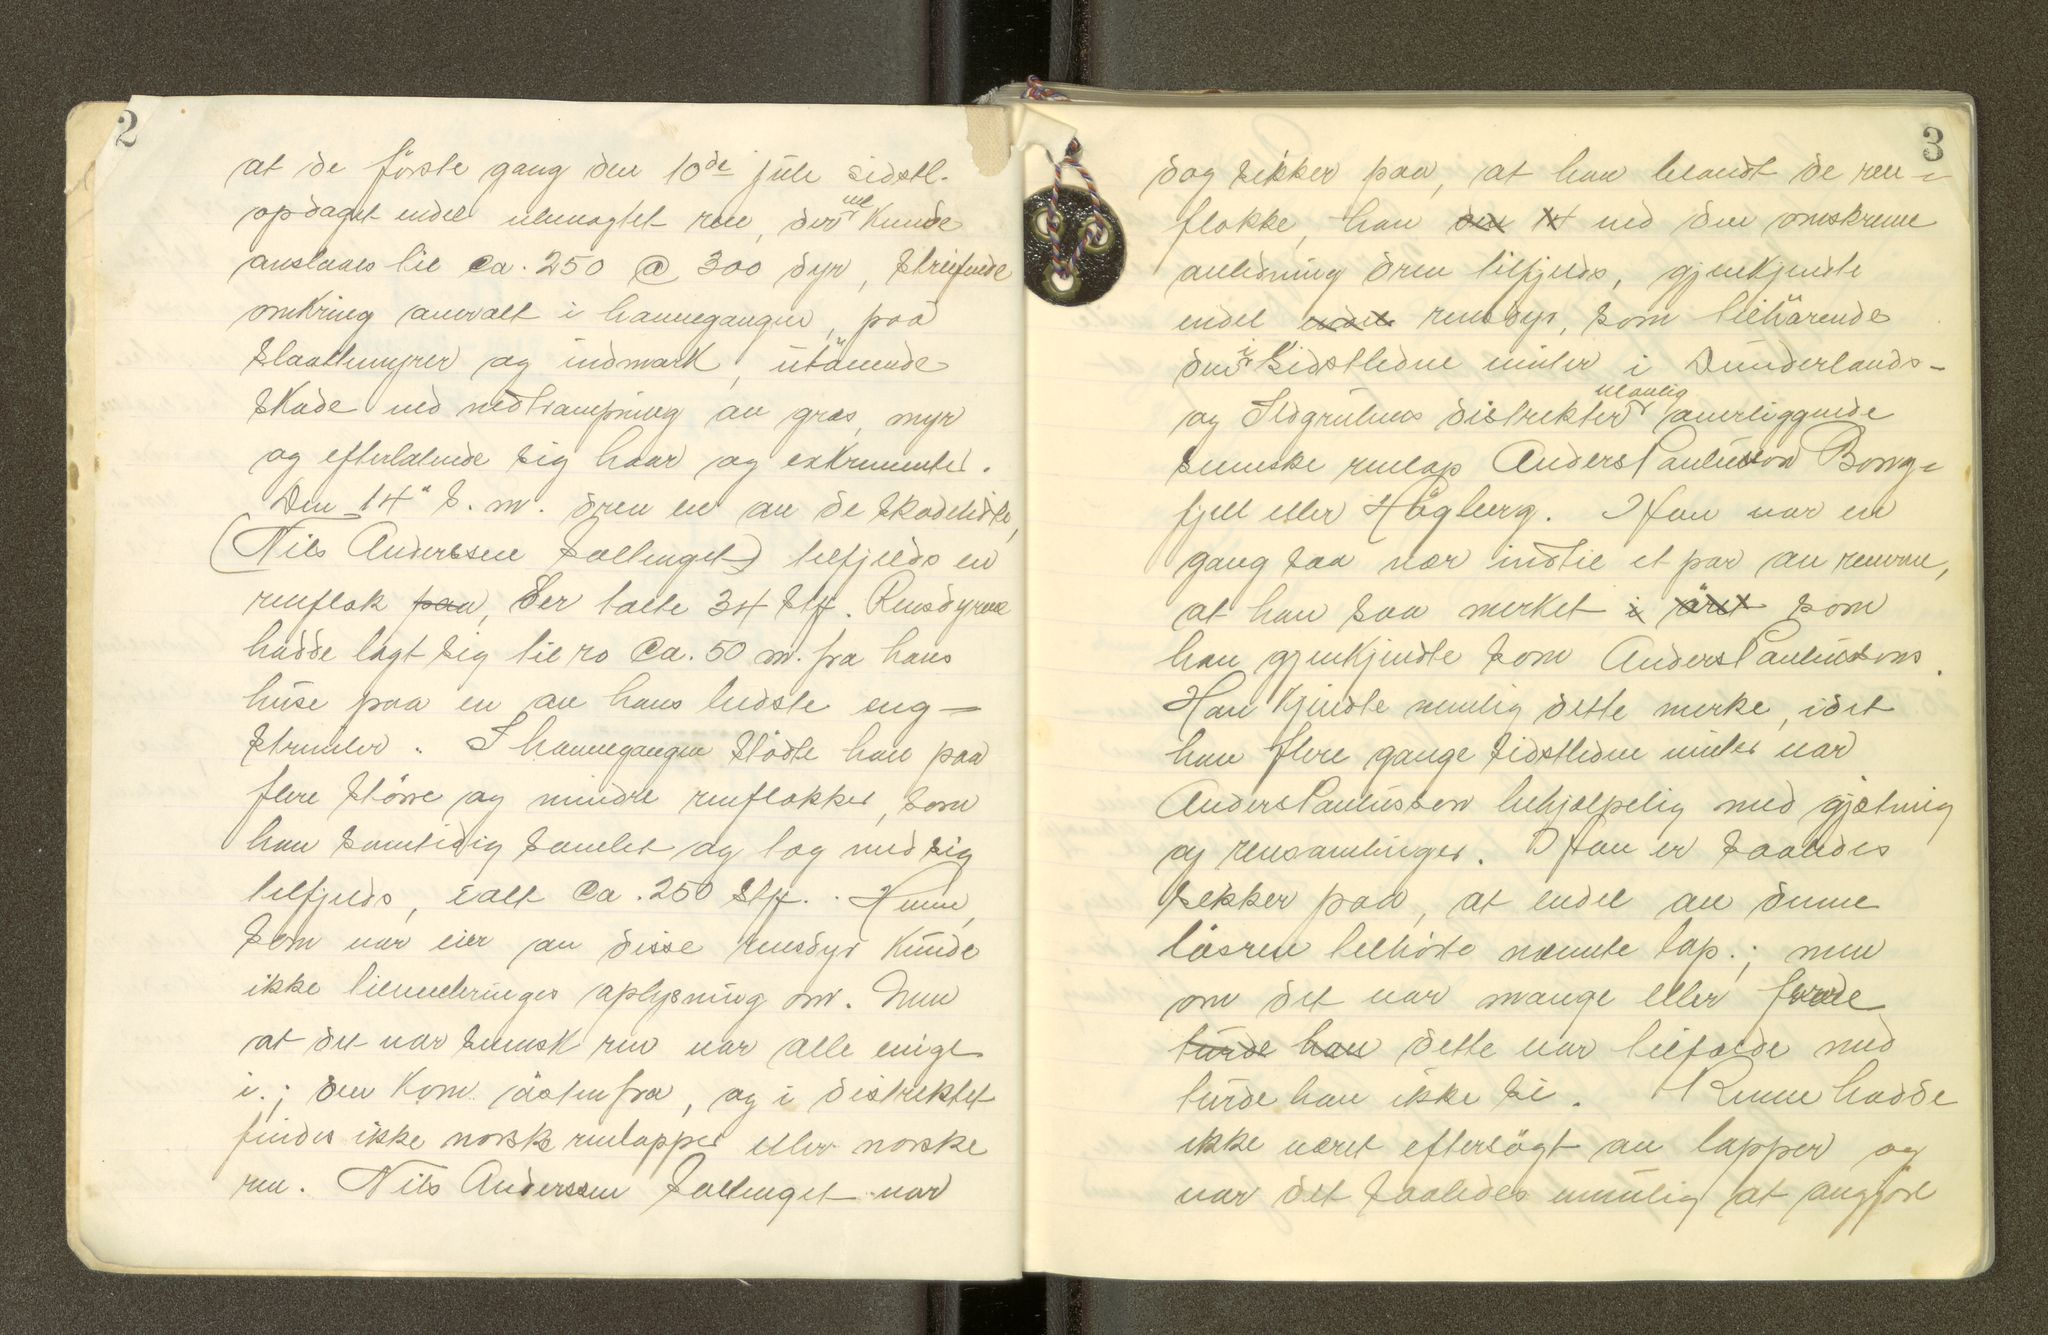 2
at de förste gang den 10de juli sidstl.
opdaget endel ubevogtet ren, der vel kunde
anslaaes til ca. 250 @ 300 dyr, streifende
omkring overalt i havnegangen, paa
slaattemyrer og indmark, utövende
skade ved nedtrampning av græs, myr
og efterlatende sig haar og exkrementer.
Den 14" s. m. drev en av de skadelidte,
(Nils Anderssen Sællenget) tilfjelds en
renflok paa, der talte 34 stk. Rensdyrene
hadde lagt sig til ro ca. 50 m. fra hans
huse paa en av hans bedste eng-
strimler. I havnegangen stödte han paa
flere större og mindre renflokker, som
han samtidig samlet og tog med sig
tilfjelds, ialt ca. 250 stk. Hvem,
som var eier av disse rensdyr kunde
ikke tilveiebringes oplysning om. Men
at det var svensk ren var alle enige
i.; den kom östenfra, og i distriktet
findes ikke norske renlapper eller norske
ren. Nils Anderssen Sællenget var
3
dog sikker paa, at han blandt de ren-
flokke, han den 14 ved den omskrevne
anledning drev tilfjelds, gjenkjendte
endel endel rensdyr, som tilhörende
den i sidstledne vinter i Dunderlands-
og Ildgrubens distrikter ulovlig overliggende
svenske renlap Anders Paulusson Borg-
fjell eller Högberg. Han var en
gang saa nær indtil et par av renerne,
at han saa merket i öret som
han gjenkjendte som Anders Paulussons.
Han kjendte nemlig dette merke, idet
han flere gange sidstledne vinter var
Anders Paulusson behjælpelig med gjætning
og rensamlinger. Han er saaledes
sikker paa, at endel av denne
lösren tilhörte nævnte lap.; men
om det var mange eller færre
turde han dette var tilfælde med
turde han ikke si. Renene hadde
ikke været eftersögt av lapper og
var det saaledes umulig at avgjöre